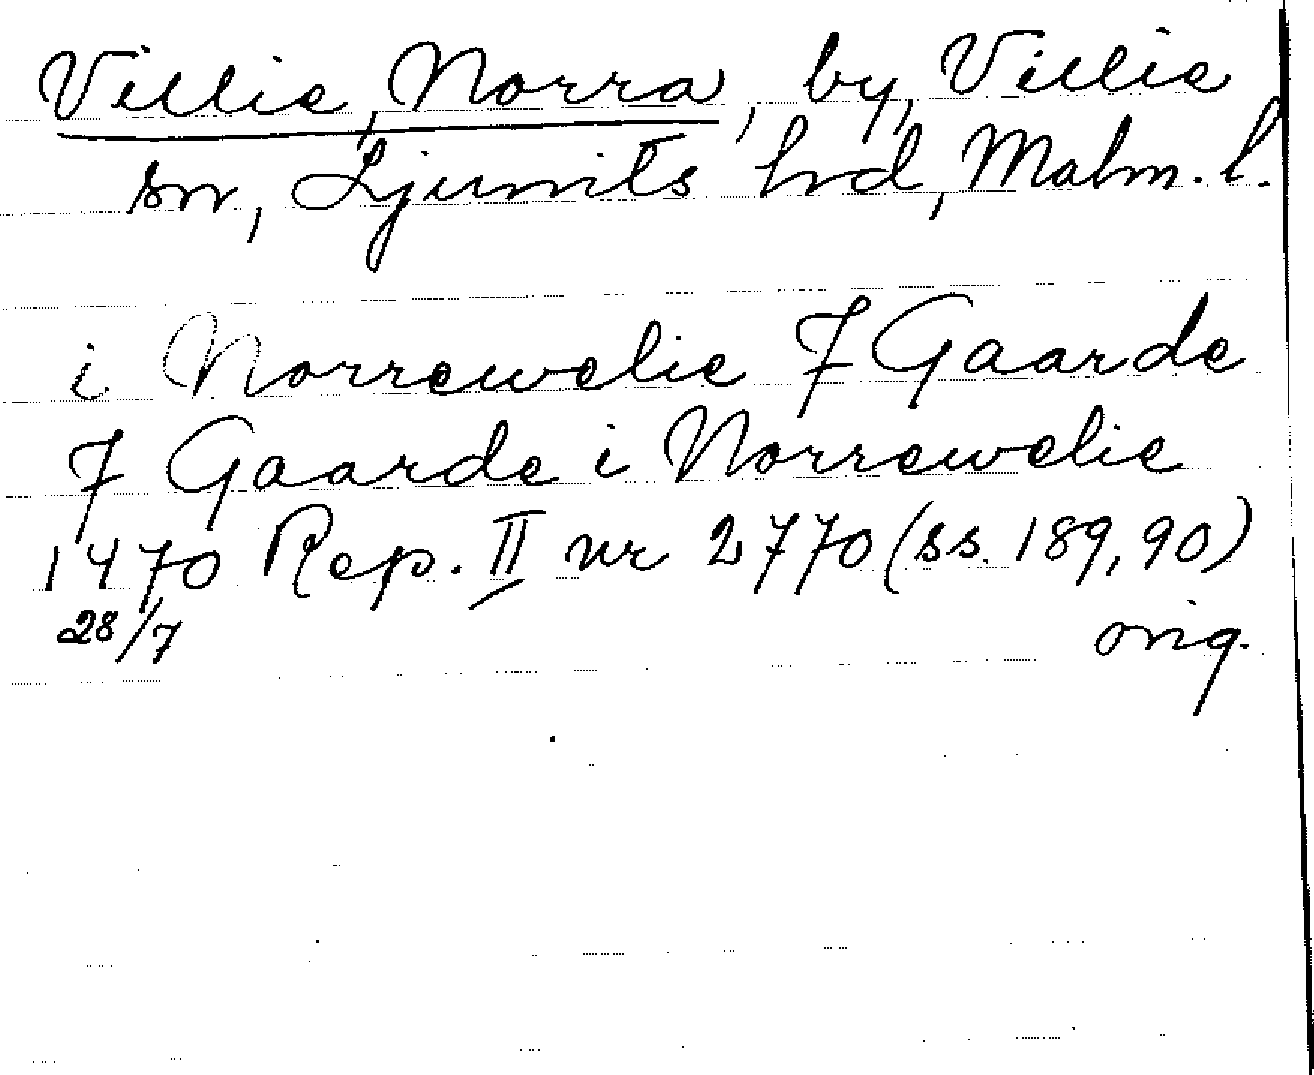 Villie, Norra, by, Villie
sn, Ljunits hrd, Malm. l.
i Norrewelie 7 Gaarde
7 Gaarde i Norrewelie
1470 Rep. II nr 2770 (ss. 189, 90)
28/7 orig.